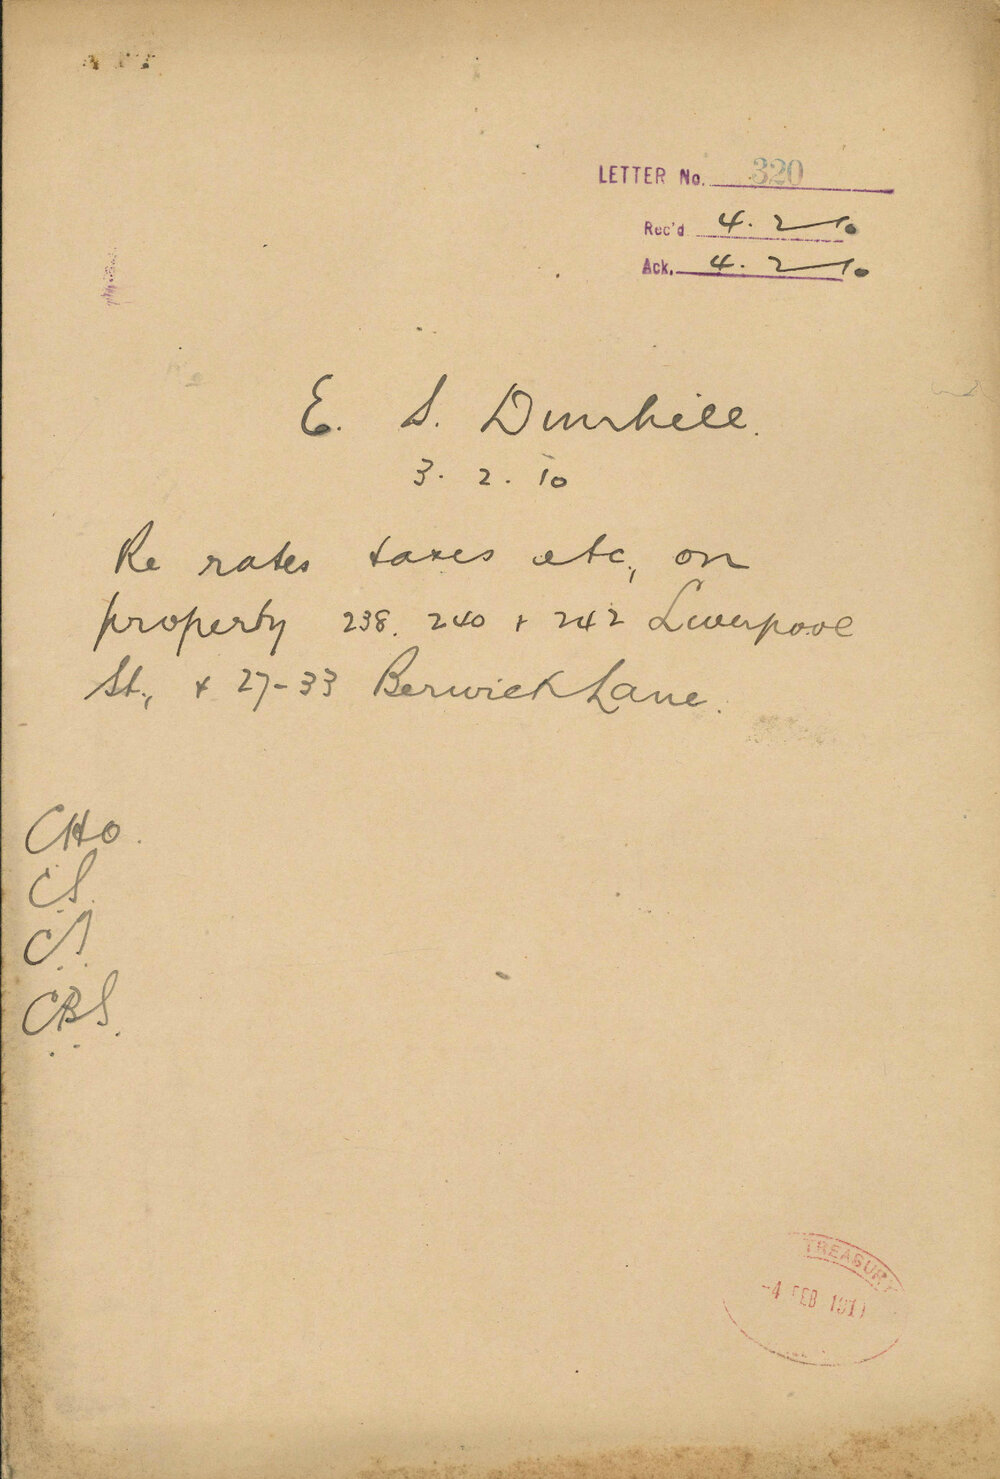 LETTER No. 320
Rec'd 4. 2/10
Ack. 4. 2/10
E. S. Dunhill.
3. 2. 10
Re rates taxes etc, on
property 238. 240 + 242 Liverpool
St., + 27-33 Berwick Lane.
CHO.
CS.
CBS.
TREASURY
-4 FEB 191